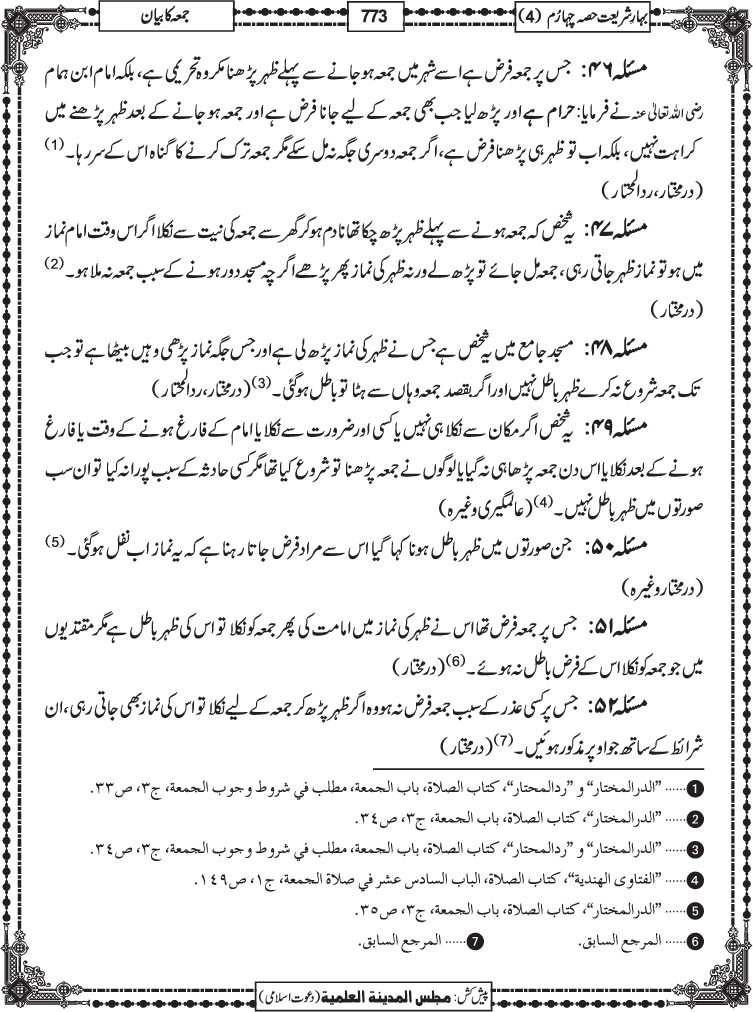 بہارِ شریعت حصہ چہارم (4)
773
جمعہ کا بیان
مسئلہ ۴۶: جس پر جمعہ فرض ہے اسے شہر میں جمعہ ہو جانے سے پہلے ظہر پڑھنا مکروہ تحریمی ہے، بلکہ امام ابن ہمام
رضی اللہ تعالیٰ عنہ نے فرمایا: حرام ہے اور پڑھ لیا جب بھی جمعہ کے لیے جانا فرض ہے اور جمعہ ہو جانے کے بعد ظہر پڑھنے میں
کراہت نہیں، بلکہ اب تو ظہر ہی پڑھنا فرض ہے، اگر جمعہ دوسری جگہ نہ مل سکے مگر جمعہ ترک کرنے کا گناہ اس کے سر رہا۔ (1)
(درمختار، ردالمحتار)
مسئلہ ۴۷: یہ شخص کہ جمعہ ہونے سے پہلے ظہر پڑھ چکا تھا نادم ہو کر گھر سے جمعہ کی نیت سے نکلا اگر اس وقت امام نماز
میں ہو تو نماز ظہر جاتی رہی، جمعہ مل جائے تو پڑھ لے ورنہ ظہر کی نماز پھر پڑھے اگرچہ مسجد دور ہونے کے سبب جمعہ نہ ملا ہو۔ (2)
(درمختار)
مسئلہ ۴۸: مسجد جامع میں یہ شخص ہے جس نے ظہر کی نماز پڑھ لی ہے اور جس جگہ نماز پڑھی وہیں بیٹھا ہے تو جب
تک جمعہ شروع نہ کرے ظہر باطل نہیں اور اگر بقصد جمعہ وہاں سے ہٹا تو باطل ہو گئی۔ (3) (درمختار، ردالمحتار)
مسئلہ ۴۹: یہ شخص اگر مکان سے نکلا ہی نہیں یا کسی اور ضرورت سے نکلا یا امام کے فارغ ہونے کے وقت یا فارغ
ہونے کے بعد نکلا یا اس دن جمعہ پڑھا ہی نہ گیا یا لوگوں نے جمعہ پڑھنا تو شروع کیا تھا مگر کسی حادثہ کے سبب پورا نہ کیا تو ان سب
صورتوں میں ظہر باطل نہیں۔ (4) (عالمگیری وغیرہ)
مسئلہ ۵۰: جن صورتوں میں ظہر باطل ہونا کہا گیا اس سے مراد فرض جاتا رہنا ہے کہ یہ نماز اب نفل ہو گئی۔ (5)
(درمختار وغیرہ)
مسئلہ ۵۱: جس پر جمعہ فرض تھا اس نے ظہر کی نماز میں امامت کی پھر جمعہ کو نکلا تو اس کی ظہر باطل ہے مگر مقتدیوں
میں جو جمعہ کو نکلا اس کے فرض باطل نہ ہوئے۔ (6) (درمختار)
مسئلہ ۵۲: جس پر کسی عذر کے سبب جمعہ فرض نہ ہو وہ اگر ظہر پڑھ کر جمعہ کے لیے نکلا تو اس کی نماز بھی جاتی رہی، ان
شرائط کے ساتھ جو اوپر مذکور ہوئیں۔ (7) (درمختار)
1 ...... "الدرالمختار" و "ردالمحتار"، كتاب الصلاة، باب الجمعة، مطلب في شروط وجوب الجمعة، ج٣، ص٣٣.
2 ...... "الدرالمختار"، كتاب الصلاة، باب الجمعة، ج٣، ص٣٤.
3 ...... "الدرالمختار" و "ردالمحتار"، كتاب الصلاة، باب الجمعة، مطلب في شروط وجوب الجمعة، ج٣، ص٣٤.
4 ...... "الفتاوى الهندية"، كتاب الصلاة، الباب السادس عشر في صلاة الجمعة، ج١، ص١٤٩.
5 ...... "الدرالمختار"، كتاب الصلاة، باب الجمعة، ج٣، ص٣٥.
6 ...... المرجع السابق. 7 ...... المرجع السابق.
پیش کش: مجلس المدینة العلمیة (دعوت اسلامی)